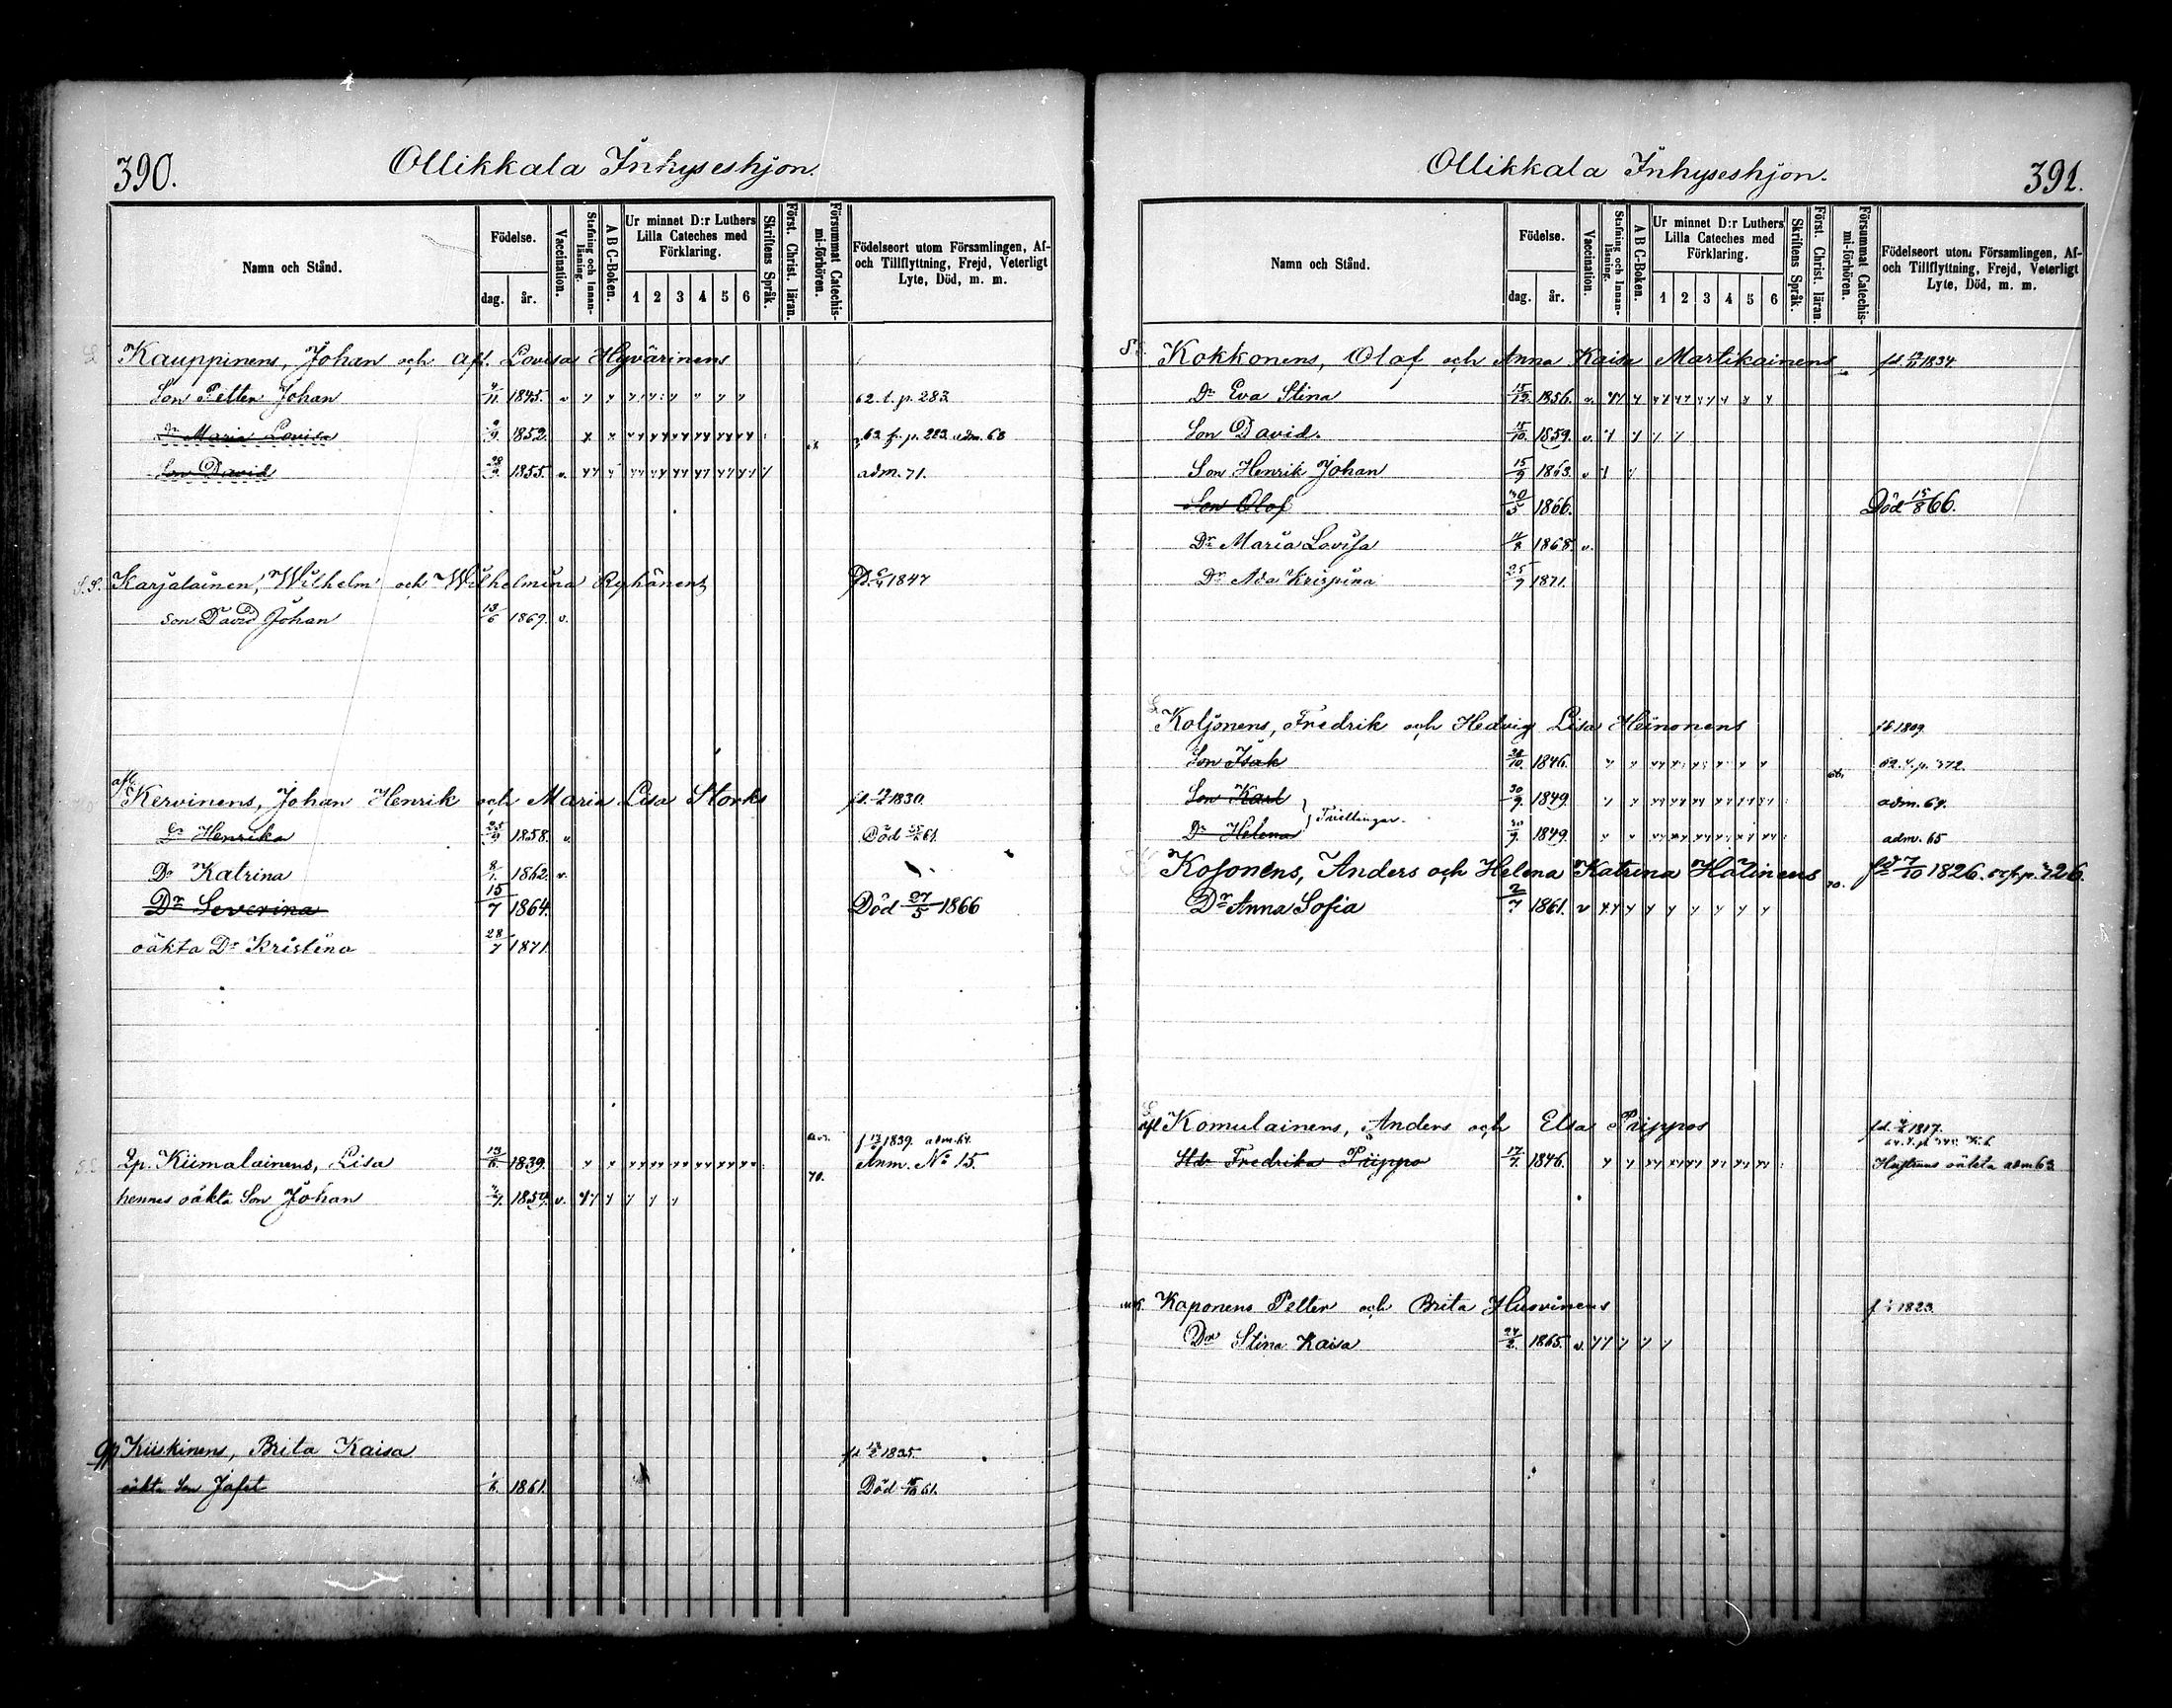 390.
Ollikkala Inhyseshjon.
Namn och Stånd.
Födelse.
dag.
år.
Vaccination.
Stafning och Innan-läsning.
A B C-Boken.
Ur minnet D:r Luthers
Lilla Cateches med
Förklaring.
1 2 3 4 5 6
Skriftens Språk.
Först. Christ. läran.
Försummat Catechis-mi-förhören.
Födelseort utom Församlingen, Af-
och Tillflyttning, Frejd, Veterligt
Lyte, Död, m. m.
Kauppinens, Johan och afl. Lovisa Hyvärinens
Son Petter Johan 4/11 1845. v 62. t. p. 283
Dr Maria Lovisa 1852. 63 f. p. 283. adm. 68
Son David 1855. v. adm. 71.
S.S. Karjalainen, Wilhelm och Wilhelmina Ryhänens 1847
son David Johan 13/6 1869. v.
afl. Kervinens, Johan Henrik och Maria Lisa Storks 1830.
Dr Henrika 25/9 1858. v. Död 61.
Dr Katrina 8/1. 1862. v.
Dr Severina 15/7 1864. Död 27/5 1866
oäkta Dr Kristina 28/7 1871.
f 13/6 1839. adm. 64.
Qp. Kiimalainens, Lisa 13/6. 1839. Anm. No 15.
70.
hennes oäkta Son Johan 1859. v.
Qp Kiiskinens, Brita Kaisa 1835.
oäkta Son Jafet 1861. Död 61.
391.
Ollikkala Inhyseshjon.
Namn och Stånd.
Födelse.
dag.
år.
Vaccination.
Stafning och Innan-läsning.
A B C-Boken.
Ur minnet D:r Luthers
Lilla Cateches med
Förklaring.
1 2 3 4 5 6
Skriftens Språk.
Först. Christ. läran.
Försummat Catechis-mi-förhören.
Födelseort utom Församlingen, Af-
och Tillflyttning, Frejd, Veterligt
Lyte, Död, m. m.
Kokkonens, Olof och Anna Kaisa Martikainens 1834.
Dr Eva Stina 15/12. 1856. v.
Son David. 1859. v.
Son Henrik Johan 15/9 1863. v
Son Olof 30/5 1866. Död 15/8 66.
Dr Maria Lovisa 1868. v.
Dr Ada Krispina 25/9 1871.
Koljonens, Fredrik och Hedvig Lisa Heinonens 1809
Son Isak 1846. 62. t. p. 372.
Son Karl 30/9. 1849. adm. 69.
Tvillingar.
Dr Helena 30/9. 1849. adm. 65
Kosonens, Anders och Helena Katrina Hälinens 70. 7/10 1826.
Dr Anna Sofia 2/7 1861. v
afl Komulainens, Anders och Elsa Piippos 1817.
Std. Fredrika Piippo 17/7. 1846. Hustruns oäkta adm 63
Kaponens Petter och Brita Husvinens 1823.
Dr Stina Kaisa 24/2. 1865. v.